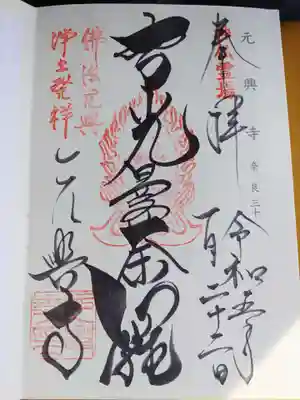 元興寺 奈良三十
奉拝
令和五年
月二十二日
智光曼荼羅
佛法元興
浄土発祥
元興寺